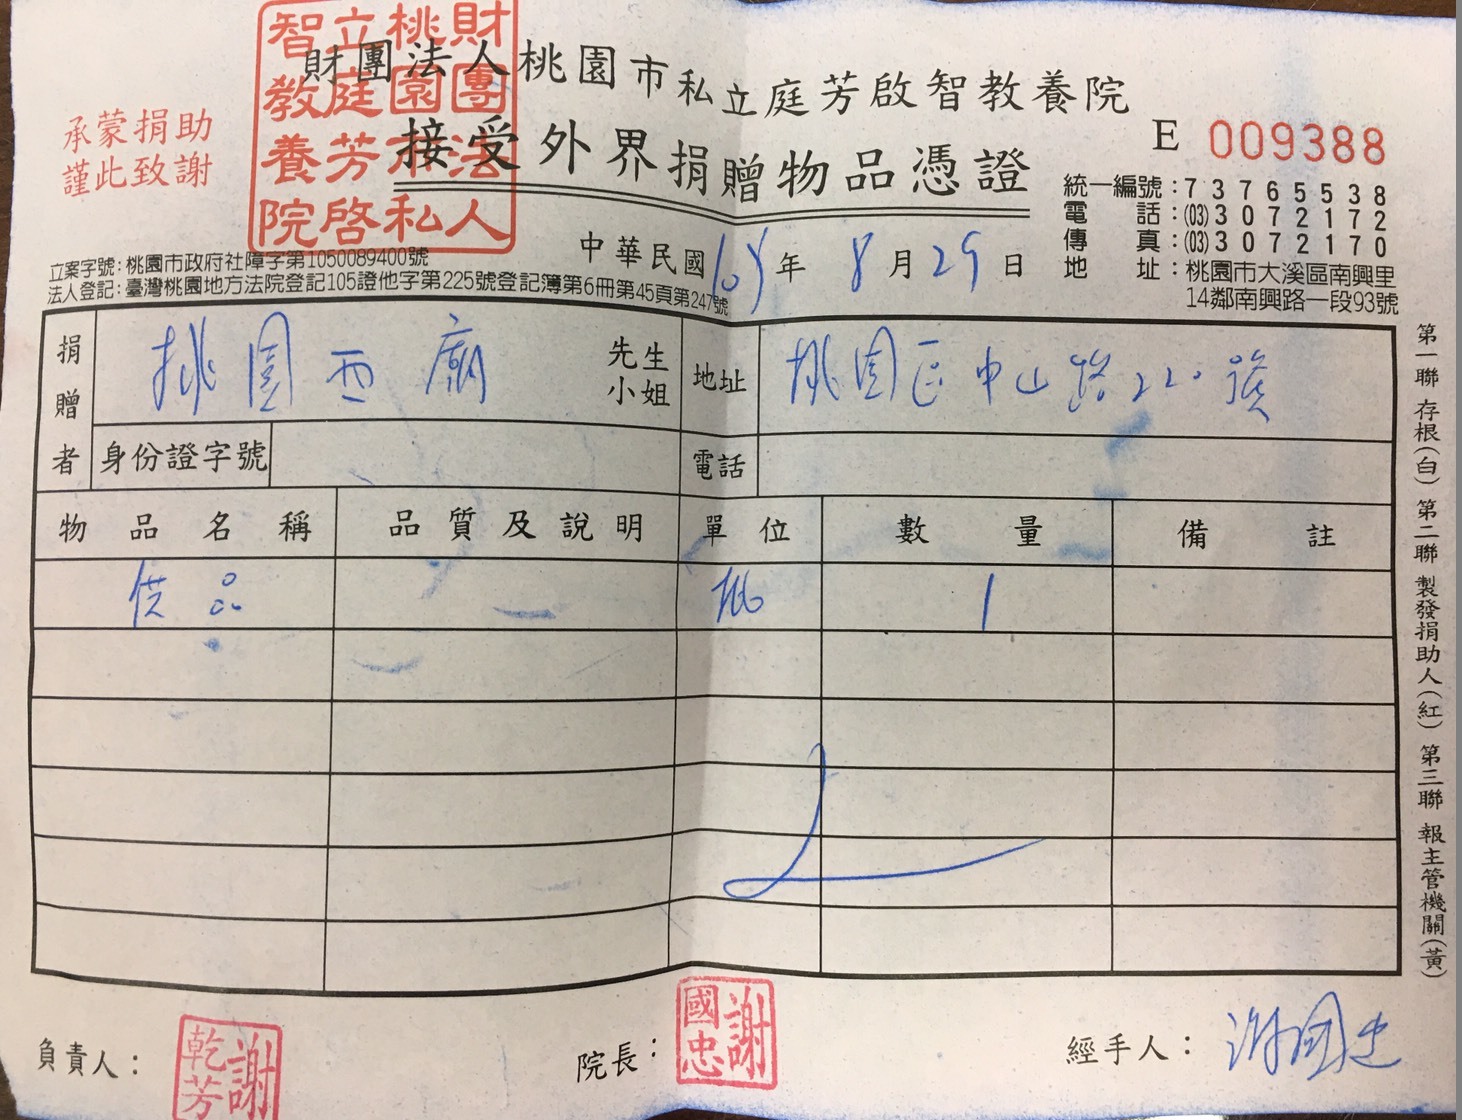 財團法人
桃園市私
立庭芳啓
智教養院
財團法人桃園市私立庭芳啟智教養院
承蒙捐助
謹此致謝
接受外界捐贈物品憑證
E 009388
統一編號：73765538
電話：(03)3072172
傳真：(03)3072170
地址：桃園市大溪區南興里
14鄰南興路一段93號
中華民國108年8月29日
立案字號：桃園市政府社障字第1050089400號
法人登記：臺灣桃園地方法院登記105證他字第225號登記簿第6冊第45頁第247號
捐贈者 桃園西廟 先生 小姐 地址 桃園區中山路220號
身份證字號 電話
物品名稱 品質及說明 單位 數量 備註
供品 批 1
第一聯 存根(白) 第二聯 製發捐助人(紅) 第三聯 報主管機關(黃)
負責人： 謝乾芳
院長： 謝國忠
經手人： 謝國忠